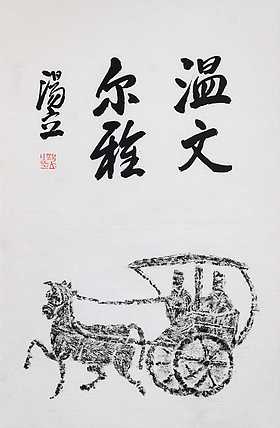 温文
尔雅
汤立